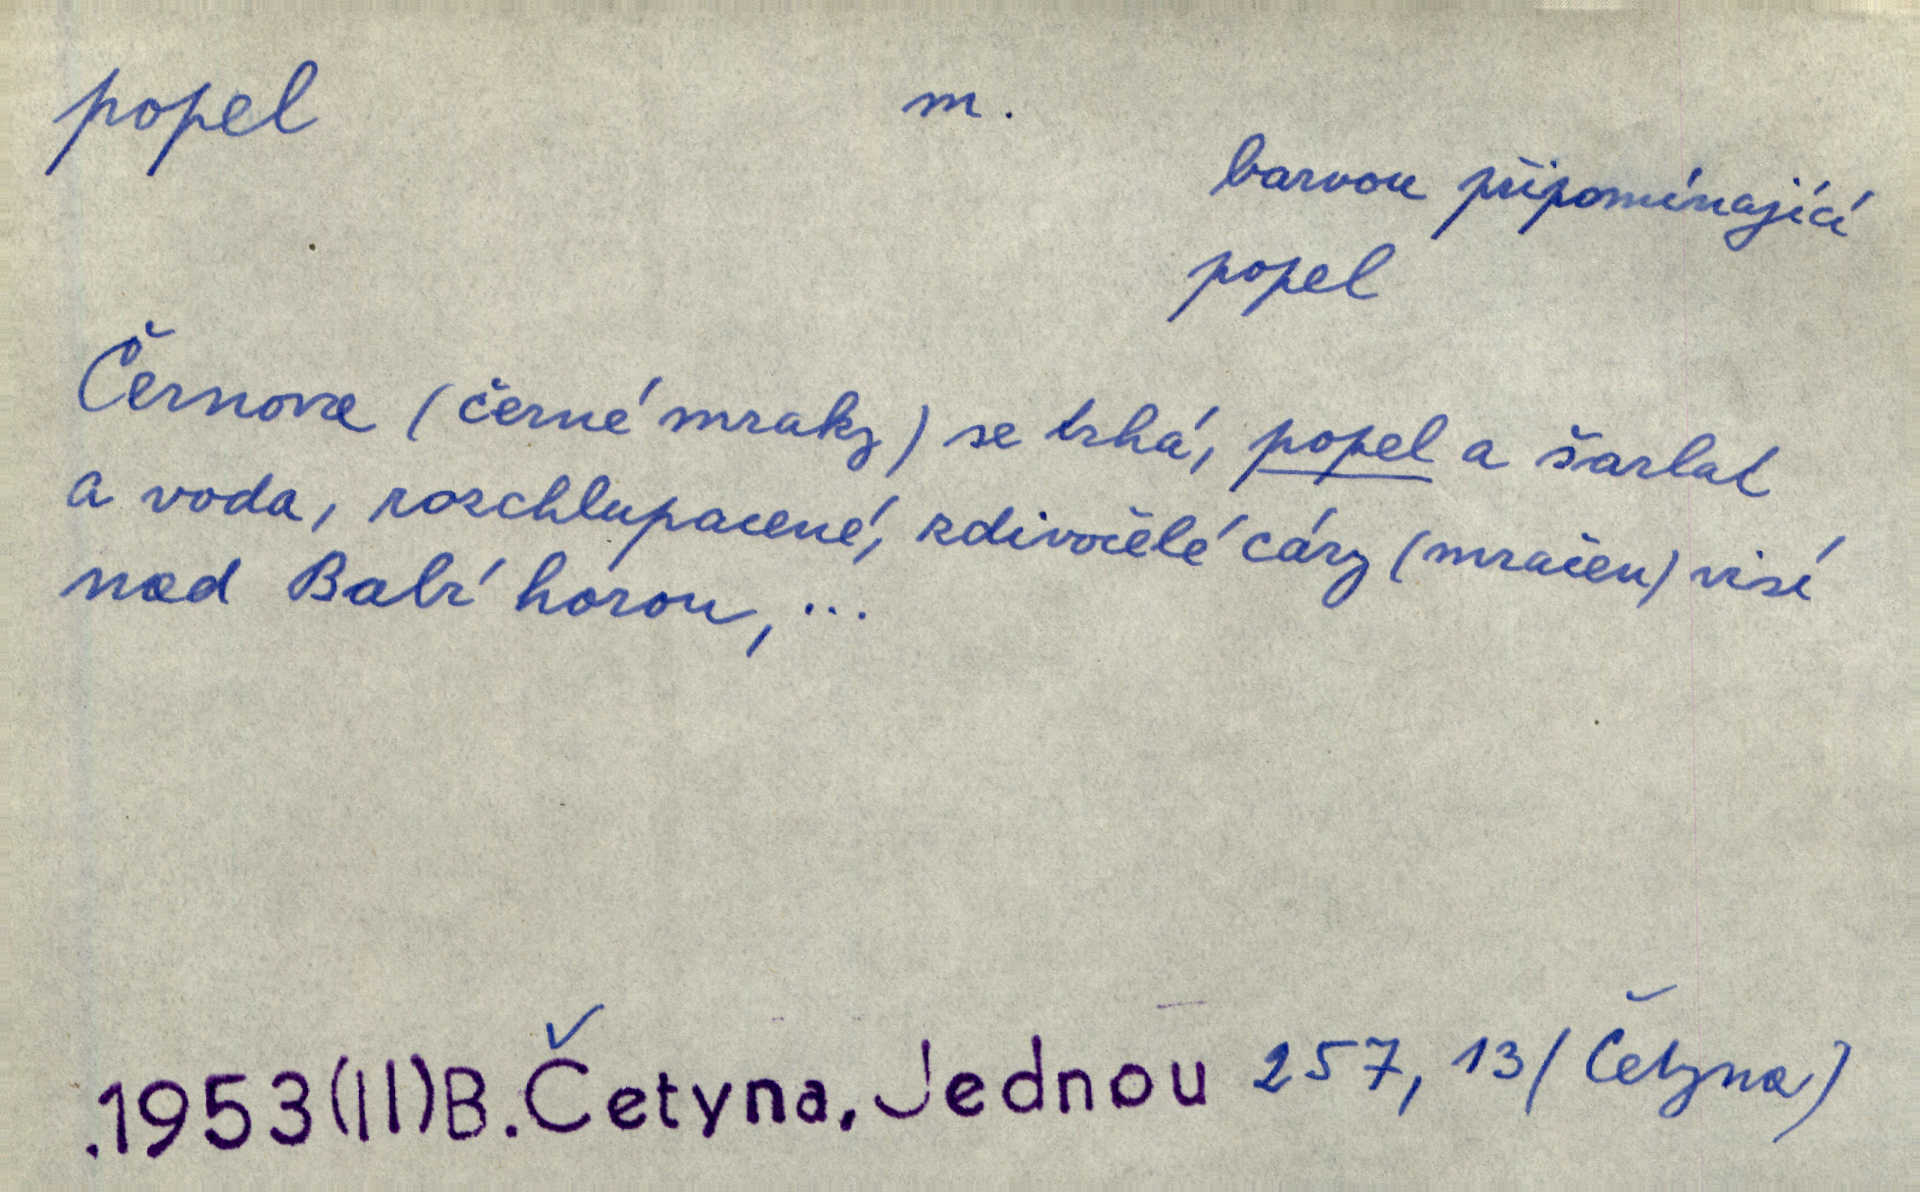 popel m.
barvou připomínající
popel
Černova (černé mraky) se trhá, popel a šarlat
a voda, rozchlupacené, zdivočelé cáry (mračen) visí
nad Babí horou, ...
.1953(II)B. Četyna, Jednou 257, 13 (Četyna)